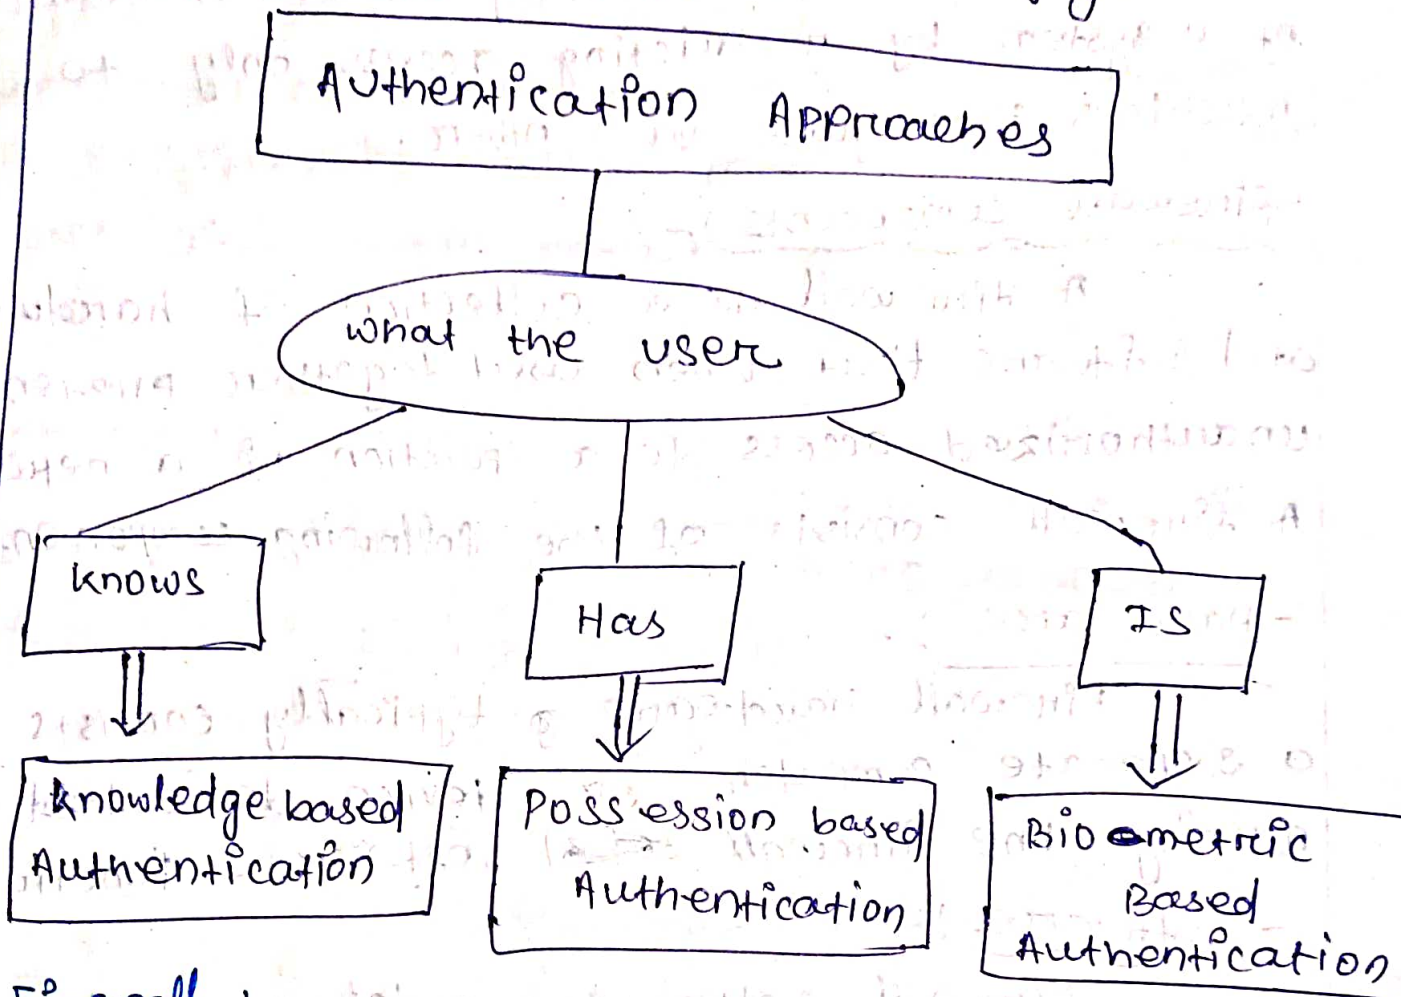 Authentication Approaches
What the user
Knows
Has
IS
Knowledge based
Authentication
Possession based
Authentication
Biometric
Based
Authentication